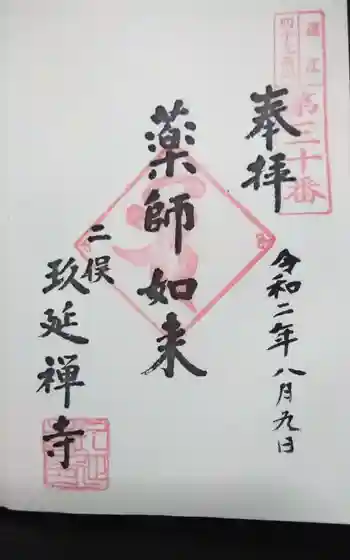 奉拝
第三十番
令和二年八月九日
薬師如来
二俣
玖延禅寺